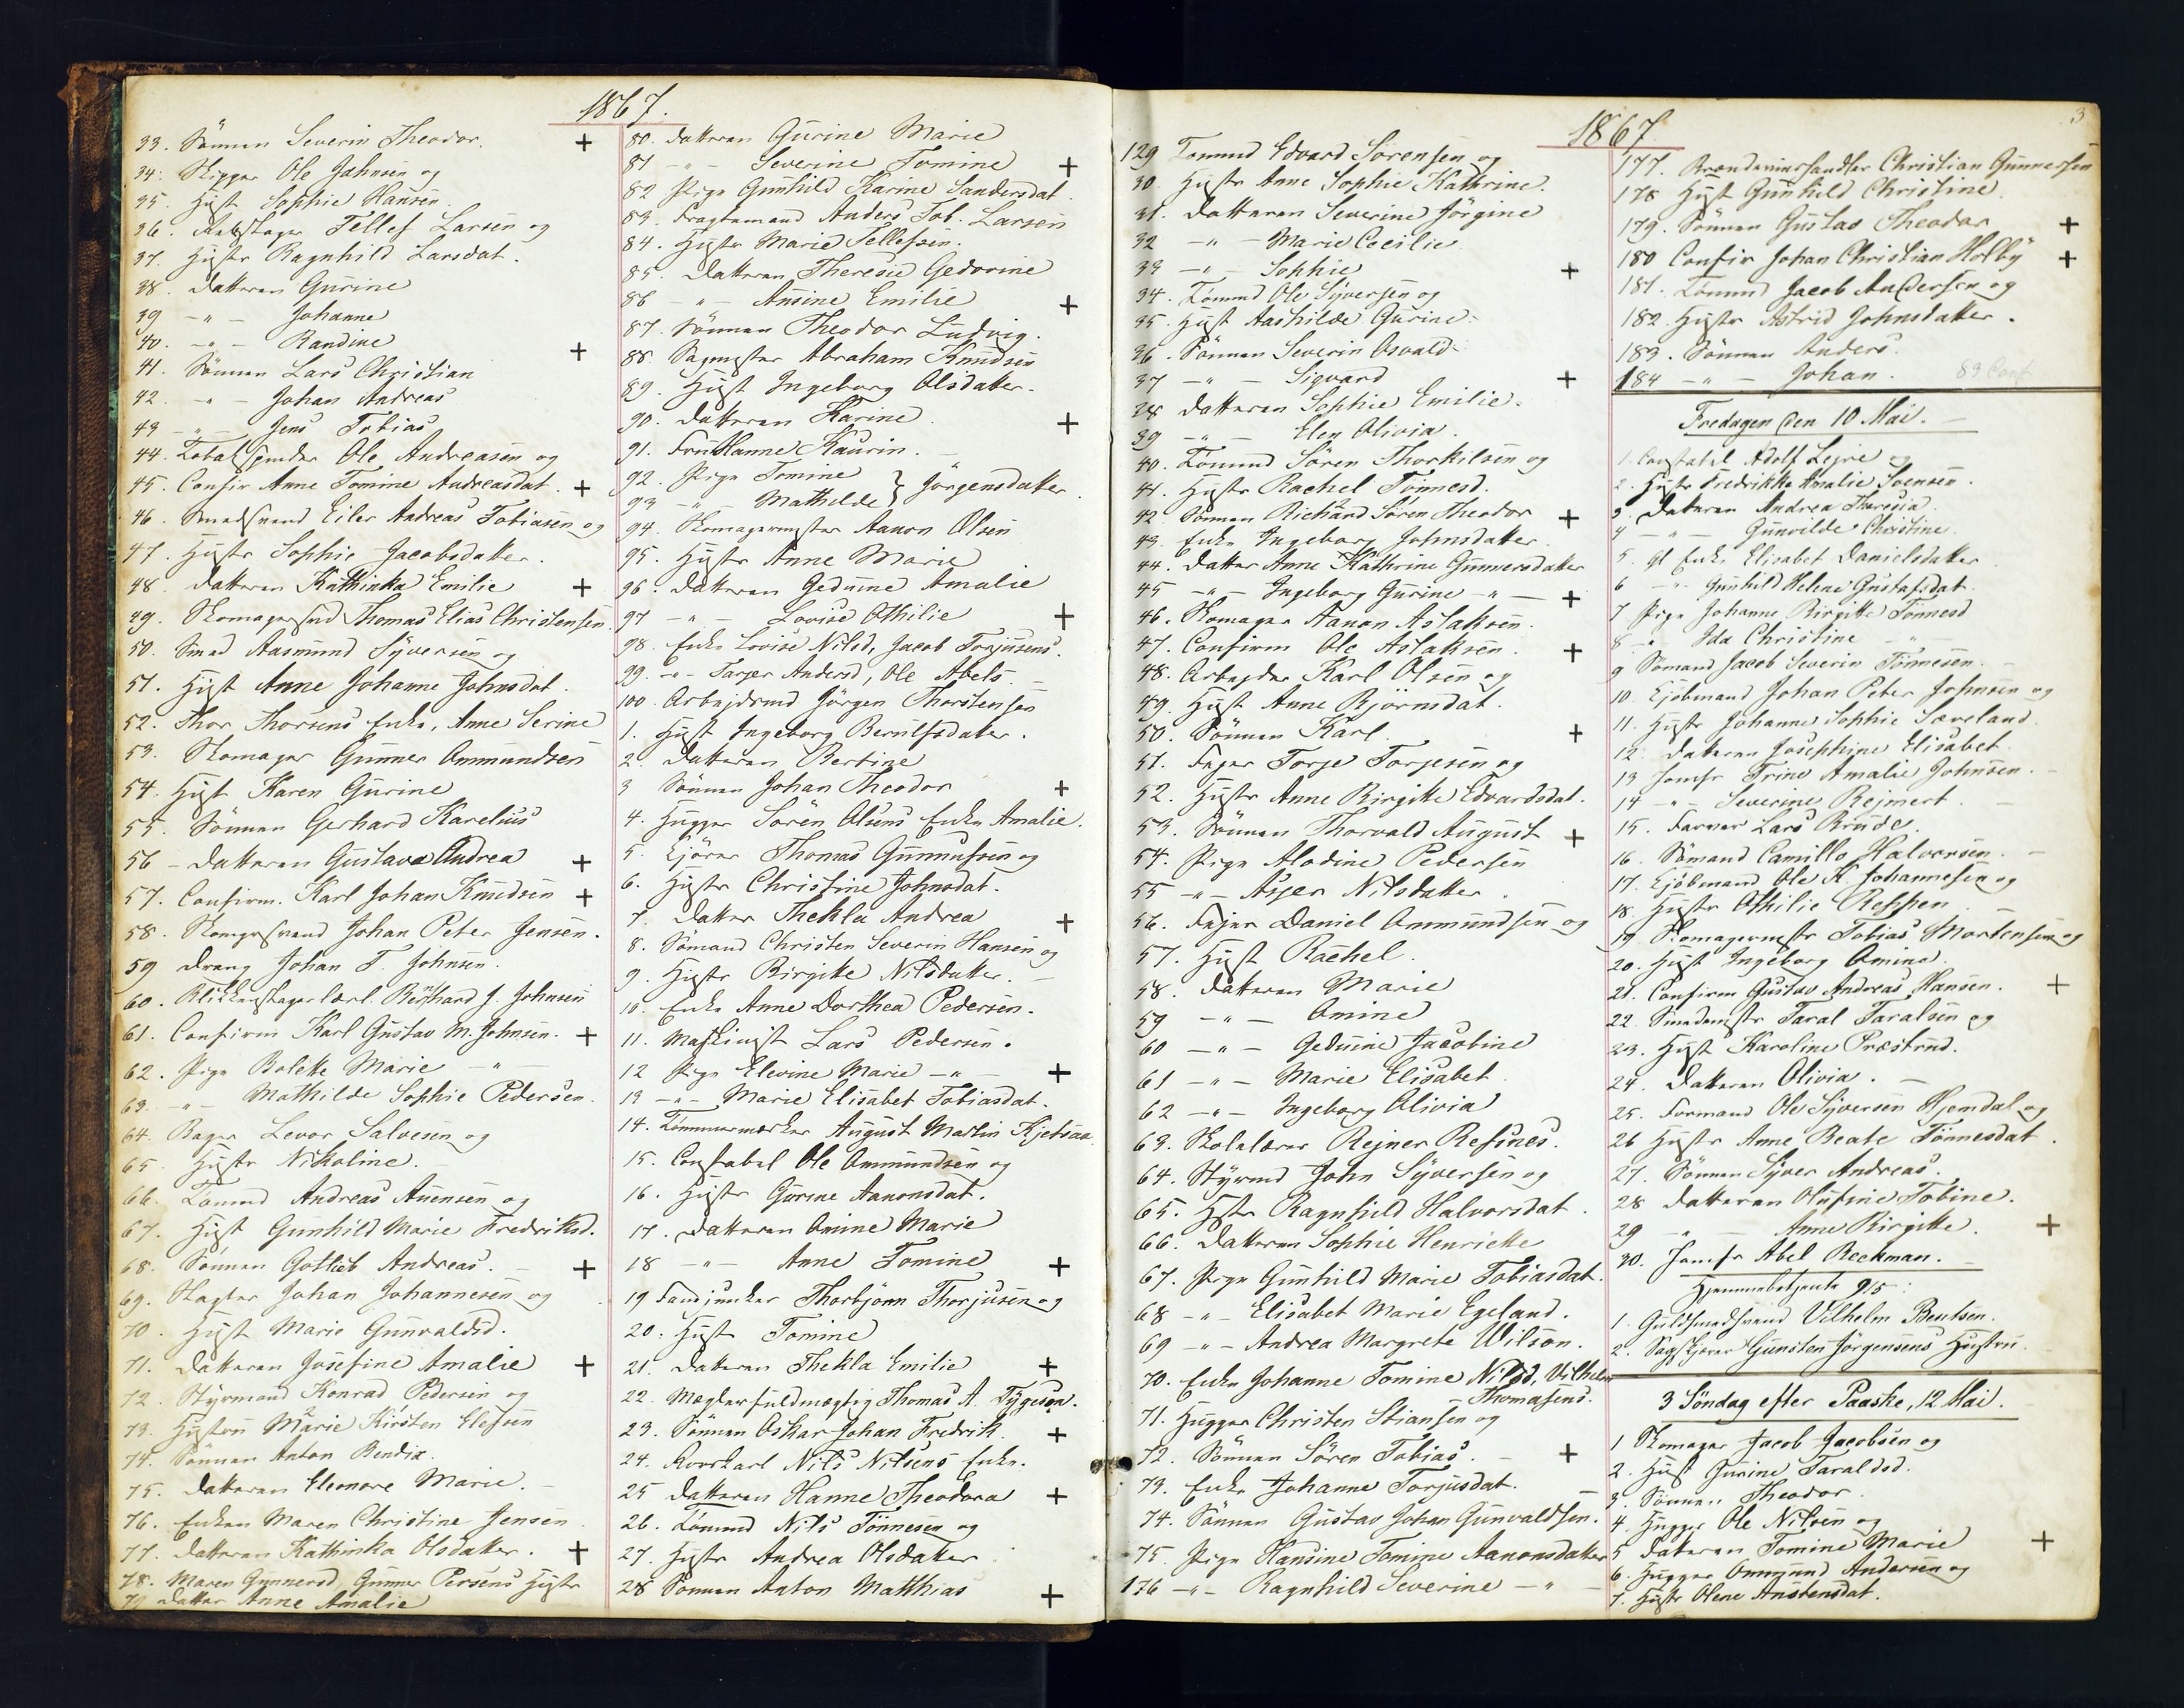 1867.
33. Sønnen Severin Theodor. +
34. Skipper Ole Johnsen og
35. Hust Sophie Hansen.
36. Rebslager Tellef Larsen og
37. Hustr Ragnhild Larsdat.
38. Datteren Gurine
39 -"- Johanne
40. -"- Randine +
41. Sønnen Lars Christian
42. -"- Johan Andreas
43 -"- Jens Tobias
44. Ole Andreasen og
45. Confir Anne Tomine Andreasdat. +
46. Smedsvend Eiler Andreas Tobiasen og
47. Hustr Sophie Jacobsdatter.
48. Datteren Kathinka Emilie +
49. Skomagersvd Thomas Elias Christensen
50. Smed Aasmund Syversen og
51. Hust Anne Johanne Johnsdat.
52. Thor Thorsens Enke, Anne Serine
53. Skomager Gunner Ommundsen
54. Hust Karen Gurine
55. Sønnen Gerhard Karelius
56 - Datteren Gustava Andrea +
57. Confirm. Karl Johan Knudsen +
58. Johan Peter Jensen.
59 Dreng Johan T. Johnsen.
60. Blikkenslagerlærl. Bernhard J. Johnsen
61. Confirm Karl Gustav M. Johnsen. +
62. Pige Bolette Marie -"-
63. -"- Mathilde Sophie Pedersen.
64. Bager Levor Salvesen og
65. Hustr Nikoline.
66. Tømmd Andreas Auensen og
67. Hust Gunhild Marie Fredriksd.
68. Sønnen Gotlieb Andreas. +
69. Slagter Johan Johannesen og
70. Hust Marie Gunvaldsd.
71. Datteren Josefine Amalie +
72. Styrmand Konrad Pedersen og
73. Hustru Marie Kirsten Ellefsen
74. Sønnen Anton Bendix.
75. Datteren Eleonore Marie.
76. Enken Maren Christine Jensen
77. Datteren Kathinka Olsdatter. +
78. Maren Gunnersd, Gunner Persens Hustr
79 Datter Anne Amalie
80. Datteren Gurine Marie
81 -"- Severine Tomine +
82 Pige Gunhild Karine Sandersdat.
83. Fragtemand Anders Tob. Larsen
84. Hustr Marie Tellefsen.
85. Datteren Theresie Gedovine
86 -"- Ansine Emilie +
87. Sønnen Theodor Ludvig.
88. Sagmester Abraham Knudsen
89. Hust Ingeborg Olsdatter.
90. Datteren Karine. +
91. Fru Hanne Kaurin.
92. Pige Tomine } Jørgensdatter.
93 -"- Mathilde
94. Skomagermester Aanon Olsen
95. Hustr Anne Marie
96. Datteren Gedune Amalie
97 -"- Lovise Othilie +
98. Enke Lovise Nilsd, Jacob Torjusens.
99. -"- Tarjer Andersd, Ole Abels.
100. Arbejdsmd Jørgen Thorstensen
1. Hust Ingeborg Berulfsdatter.
2. Datteren Bertine
3 Sønnen Johan Theodor +
4. Hugger Søren Olsens Enke Amalie.
5. Ejører Thomas Gunnufsen og
6. Hustr Christine Johnsdat.
7. Datter Thekla Andrea +
8. Sømand Christen Severin Hansen og
9. Hustr Birgitte Nilsdatter.
10. Enke Anne Dorthea Pedersen.
11. Maskinist Lars Pedersen.
12 Pige Elevine Marie -"- +
13 -"- Marie Elisabet Tobiasdat.
14. Tømmermærker August Martin Kjetsaa.
15. Constabel Ole Ommundsen og
16. Hustr Gurine Aanonsdat.
17. Datteren Omine Marie
18 -"- Anne Tomine +
19 Fanejunker Thorbjørn Thorjusen og
20. Hust Tomine
21. Datteren Thekla Emilie +
22. Mæglerfuldmægtig Thomas A. Tygeson.
23. Sønnen Oskar Johan Fredrik. +
24. Nils Nilsens Enke.
25 Datteren Hanne Theodora +
26. Tømmd Nils Tønnesen og
27. Hustr Andrea Olsdatter
28 Sønnen Anton Matthias +
1867
3
129 Tømmd Edvard Sørensen og
30. Hustr Anne Sophie Kathrine.
31. Datteren Severine Jörgine
32 -"- Marie Cecilie
33 -"- Sophie +
34. Tømmd Ole Syversen og
35. Hust Aashilde Gurine.
36. Sønnen Severin Osvald.
37 -"- Sigvard +
38 Datteren Sophie Emilie.
39 -"- Elen Olivia.
40. Tømmd Søren Thorkilsen og
41. Hustr Rachel Tønnesd.
42 Sønnen Richard Søren Theodor +
43. Enke Ingeborg Johnsdatter.
44. Datter Anne Kathrine Gunnersdatter
45 -"- Ingeborg Gurine -"- +
46. Skomager Aanon Aslaksen.
47. Confirm Ole Aslaksen. +
48. Arbejder Karl Olsen og
49. Hust Anne Bjørnsdat.
50. Sønnen Karl. +
51. Fejer Torje Torjesen og
52. Hustr Anne Birgitte Edvardsdat.
53. Sønnen Thorvald August +
54. Pige Alodine Pedersen
55 -"- Asjer Nilsdatter.
56. Fejer Daniel Ommundsen og
57. Hust Rachel.
58. Datteren Marie
59 -"- Omine
60 -"- Gedunine Jacobine
61 -"- Marie Elisabet
62 -"- Ingeborg Olivia
63. Skolelærer Rejner Refsnes.
64. Styrmd John Syversen og
65. Hstr Ragnhild Halvorsdat.
66. Datteren Sophie Henriette
67. Pige Gunhild Marie Tobiasdat.
68 -"- Elisabet Marie Egeland.
69 -"- Andrea Margrete Wilson.
70. Enke Johanne Tomine Nilsd, Vilhelm
Thomasens.
71. Hugger Christen Stiansen og
72. Sønnen Søren Tobias. +
73. Enke Johanne Torjusdat.
74. Sønnen Gustav Johan Gunvaldsen.
75. Pige Hansine Tomine Aanonsdatter
176 -"- Ragnhild Severine -"-
177. Brændevinshandler Christian Gunnersen
178 Hust Gunhild Christine.
179. Sønnen Gustav Theodor +
180 Confir Johan Christian Holby +
181. Tømmd Jacob Andersen og
182. Hustr Astrid Johnsdatter.
183. Sønnen Anders.
184 -"- Johan. 83 Conf
Fredagen den 10 Mai.
1. Constabel Adolf Lejre og
2. Hustr Fredrikke Amalie Svensen.
3. Datteren Andrea Theresia
4 -"- Gunvilde Christine.
5. gl Enke Elisabet Danielsdatter
6 -"- Gunhild Helene Gustafsdat.
7 Pige Johanne Birgitte Tønnesd
8 -"- Ida Christine -"-
9 Sømand Jacob Severin Tønnesen.
10. Kjøbmand Johan Peter Johnsen og
11. Hustr Johanne Sophie Sæveland.
12. Datteren Josephine Elisabet.
13 Jomfr Trine Amalie Johnsen.
14 -"- Severine Rejmert.
15. Farver Lars Brude.
16. Sømand Camillo Halvorsen.
17. Kjøbmand Ole K. Johannesen og
18. Hustr Othilie Reppen
19 Skomagermestr Tobias Mortensen og
20. Hust Ingeborg Omine.
21. Confirm Gustav Andreas Hansen. +
22. Smedemstr Taral Taralsen og
23. Hust Karoline Præstrud.
24. Datteren Olivia.
25. Formand Ole Syversen Hjemdal og
26 Hustr Anne Beate Tønnesdat.
27. Sønnen Syver Andreas.
28 Datteren Olufine Tobine.
29 -"- Anne Birgitte. +
30. Jomfr Abel Beckman.
Hjemmebetjente 9/5:
1. Guldsmedsvend Vilhelm Bentsen.
2. Gunsten Jørgensens Hustru.
3 Söndag efter Paaske, 12 Mai.
1 Skomager Jacob Jacobsen og
2. Hust Gurine Taraldsd.
3. Sønnen Theodor.
4. Hugger Ole Nilsen og
5 Datteren Tomine Marie +
6. Hugger Ommund Andersen og
7. Hustr Olene Anstensdat.